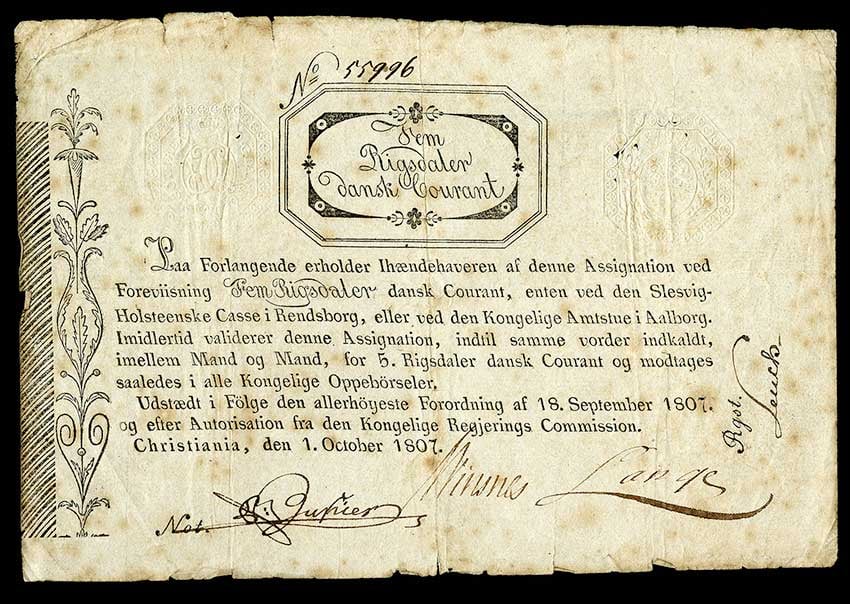 No 55996
Fem
Rigsdaler
dansk Courant
Paa Forlangende erholder Ihændehaveren af denne Assignation ved
Foreviisning Fem Rigsdaler dansk Courant, enten ved den Slesvig-
Holsteenske Casse i Rendsborg, eller ved den Kongelige Amtstue i Aalborg.
Imidlertid validerer denne Assignation, indtil samme vorder indkaldt,
imellem Mand og Mand, for 5. Rigsdaler dansk Courant og modtages
saaledes i alle Kongelige Oppebörseler.
Udstædt i Fölge den allerhöyeste Forordning af 18. September 1807.
og efter Autorisation fra den Kongelige Regjerings Commission.
Christiania, den 1. October 1807.
Winsnes Lange
Not.
Rgst.